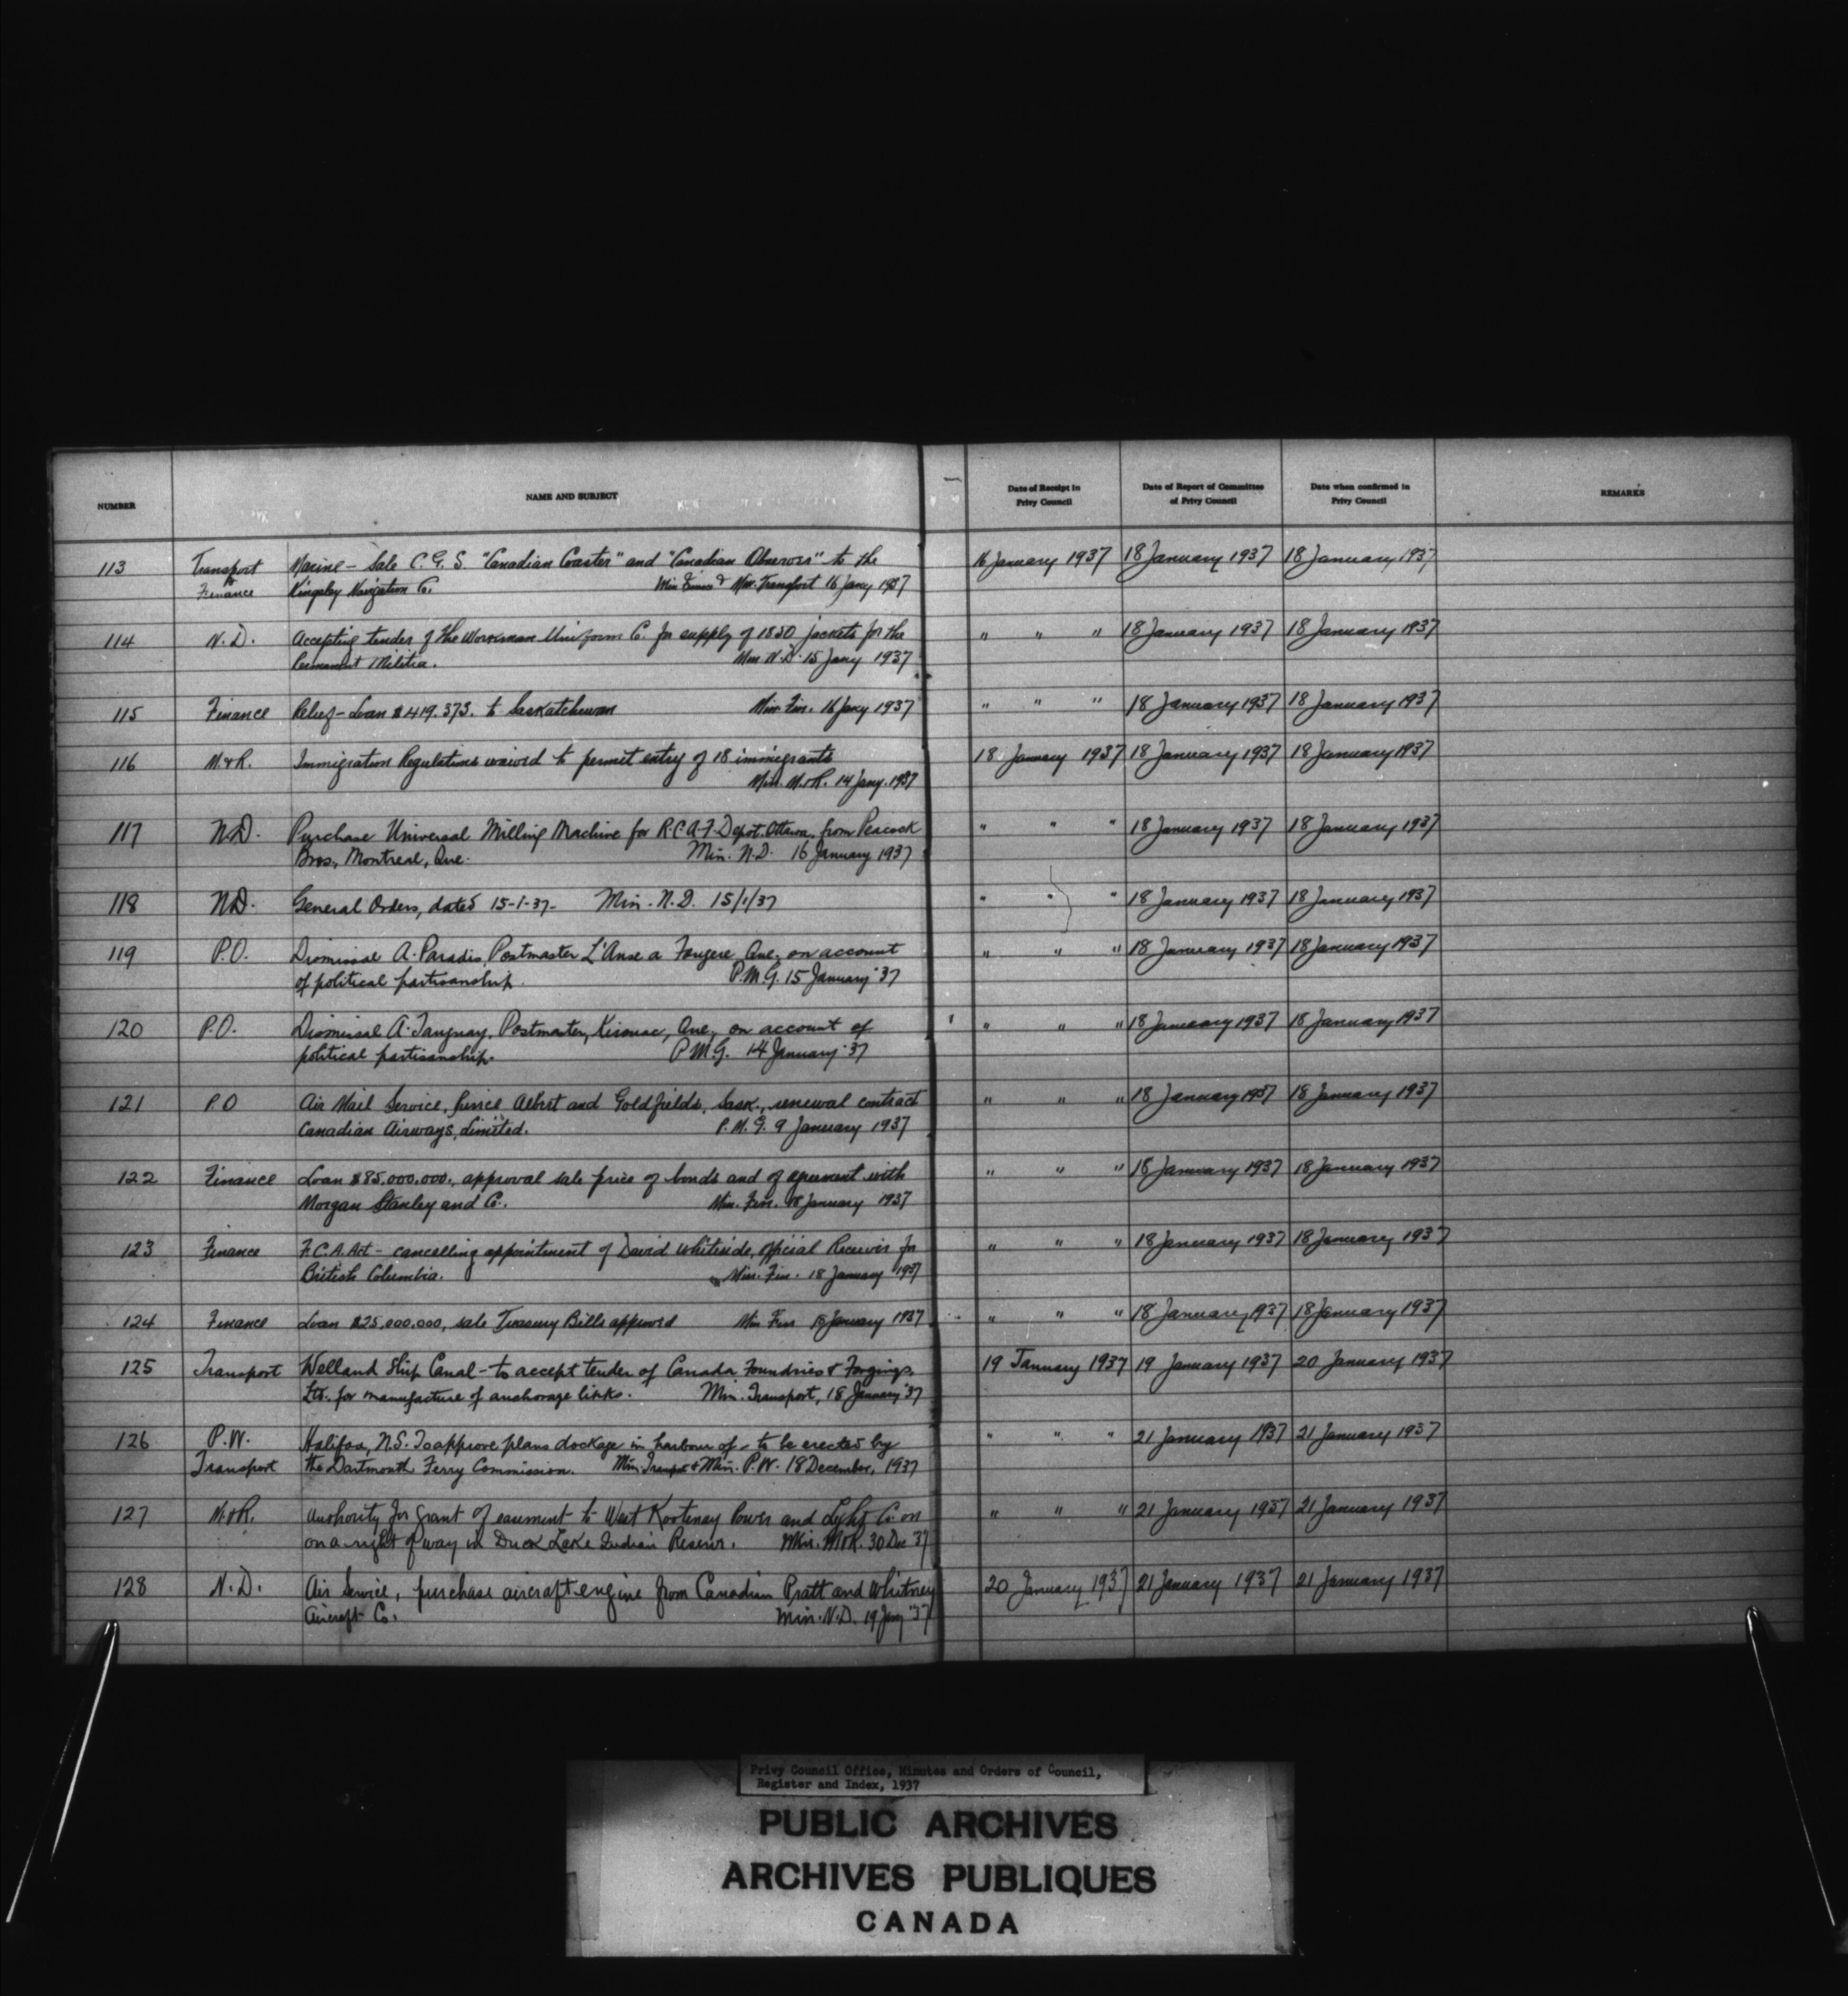 NUMBER NAME AND SUBJECT Date of Receipt in Privy Council Date of Report of Committee of Privy Council Date when confirmed in Privy Council REMARKS
113 Transport Marine - Sale C.G.S. "Canadian Coaster" and "Canadian Observer" to the 16 January 1937 18 January 1937 18 January 1937
& Finance Kingsley Navigation Co. Min Finance & Min. Transport 16 Jany 1937
114 N.D. Accepting tender of the Workman Uniform Co. for supply of 1850 jackets for the " " " 18 January 1937 18 January 1937
Permanent Militia. Min N.D. 15 Jany 1937
115 Finance Relief - Loan $419.373. to Saskatchewan Min. Fin. 16 Jany 1937 " " " 18 January 1937 18 January 1937
116 M.&R. Immigration Regulations waived to permit entry of 18 immigrants 18 January 1937 18 January 1937 18 January 1937
Min. M.&R. 14 Jany. 1937
117 N.D. Purchase Universal Milling Machine for R.C.A.F. Depot. Ottawa, from Peacock " " " 18 January 1937 18 January 1937
Bros., Montreal, Que. Min. N.D. 16 January 1937
118 N.D. General Orders, dated 15-1-37- Min. N.D. 15/1/37 " " " 18 January 1937 18 January 1937
119 P.O. Dismissal A. Paradis, Postmaster L'Anse a Fougere Que. on account " " " 18 January 1937 18 January 1937
of political partisanship. P.M.G. 15 January '37
120 P.O. Dismissal A. Tanguay, Postmaster, Kirouac, Que, on account of " " " 18 January 1937 18 January 1937
political partisanship. P.M.G. 14 January '37
121 P.O Air Mail Service, Prince Albert and Goldfields, Sask., renewal contract " " " 18 January 1937 18 January 1937
Canadian Airways, Limited. P.M.G. 9 January 1937
122 Finance Loan $85.000.000., approval sale price of bonds and of agreement with " " " 18 January 1937 18 January 1937
Morgan Stanley and Co. Min. Fin. 18 January 1937
123 Finance F.C.A. Act - cancelling appointment of David Whiteside, official Receiver for " " " 18 January 1937 18 January 1937
British Columbia. Min. Fin. 18 January 1937
124 Finance Loan $25,000.000, sale Treasury Bills approved Min Fin 18 January 1937 " " " 18 January 1937 18 January 1937
125 Transport Welland Ship Canal - to accept tender of Canada Foundries & Forgings, 19 January 1937 19 January 1937 20 January 1937
Ltd. for manufacture of anchorage links. Min. Transport, 18 January '37
126 P.W. Halifax, N.S. To approve plans dockage in harbour of - to be erected by " " " 21 January 1937 21 January 1937
Transport the Dartmouth Ferry Commission. Min. Transport & Min. P.W. 18 December, 1937
127 M.&R. Authority for grant of easement to West Kootenay Power and Light Co. on " " " 21 January 1937 21 January 1937
on a right of way in Duck Lake Indian Reserve. Min. M&R. 30 Dec '37
128 N.D. Air Service, purchase aircraft engine from Canadian Pratt and Whitney 20 January 1937 21 January 1937 21 January 1937
Aircraft Co. Min. N.D. 19 Jany '37
Privy Council Office, Minutes and Orders of Council,
Register and Index, 1937
PUBLIC ARCHIVES
ARCHIVES PUBLIQUES
CANADA